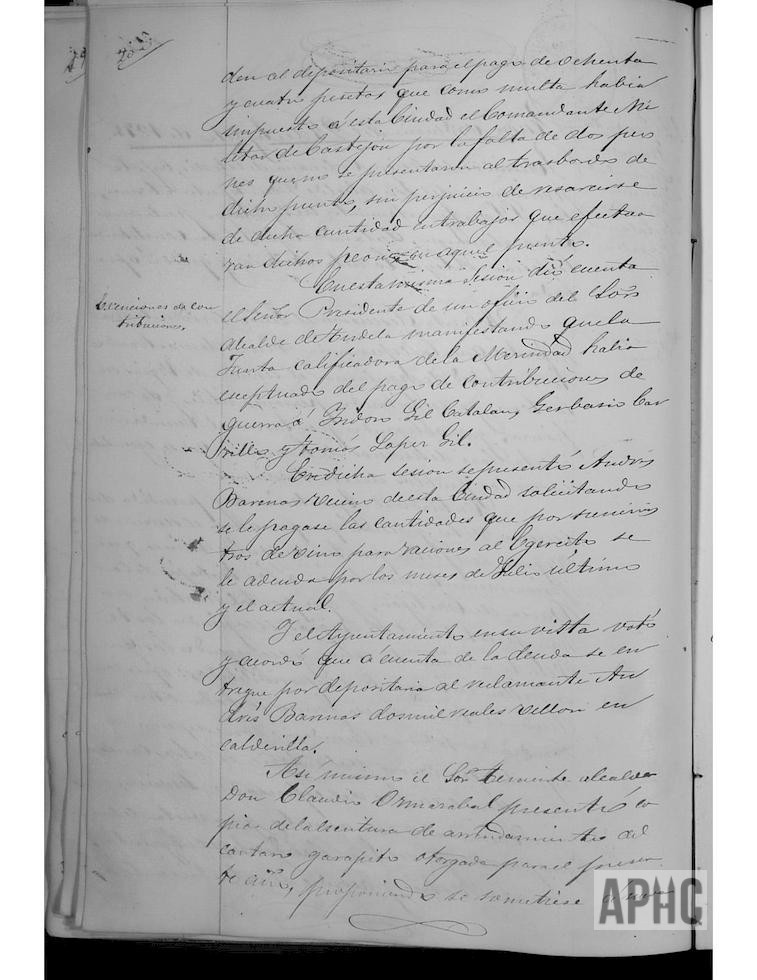 den al depositario para el pago de ochenta
y cuatro pesetas que como multa habia
impuesto á esta Ciudad el Comandante Mi
litar de Castejon por la falta de dos peo
nes que no se presentaron al trasbordo de
dicho punto, sin perjuicio de resarcirse
de dicha cantidad en trabajos que efectua
ran dichos peones en aquel punto.
En esta misma sesion dió cuenta
Exenciones de con
tribuciones.
el Señor Presidente de un oficio del Sor
Alcalde de Tudela manifestando que la
Junta calificadora de la Merindad habia
esceptuado del pago de contribuciones de
guerra á Isidoro Gil Catalan, Gerbasio Car
rillo y Tomás Lapez Gil.
En dicha sesion se presentó Andrés
Barenas vecino de esta Ciudad solicitando
se le pagase las cantidades que por suminis
tros de vino para raciones al Egercito se
le adeuda por los meses de Julio último
y el actual.
Y el Ayuntamiento en su vista votó
y acordó que á cuenta de la deuda se en
tregue por depositaria al reclamante An
drés Barenas dos mil reales vellon en
calderilla.
Asi mismo el Sor Teniente alcalde
Don Claudio presentó co
pia de la escritura de arrendamiento del
cantaro garapito otorgada para el presen
te año, proponiendo se sometiese á
APHC